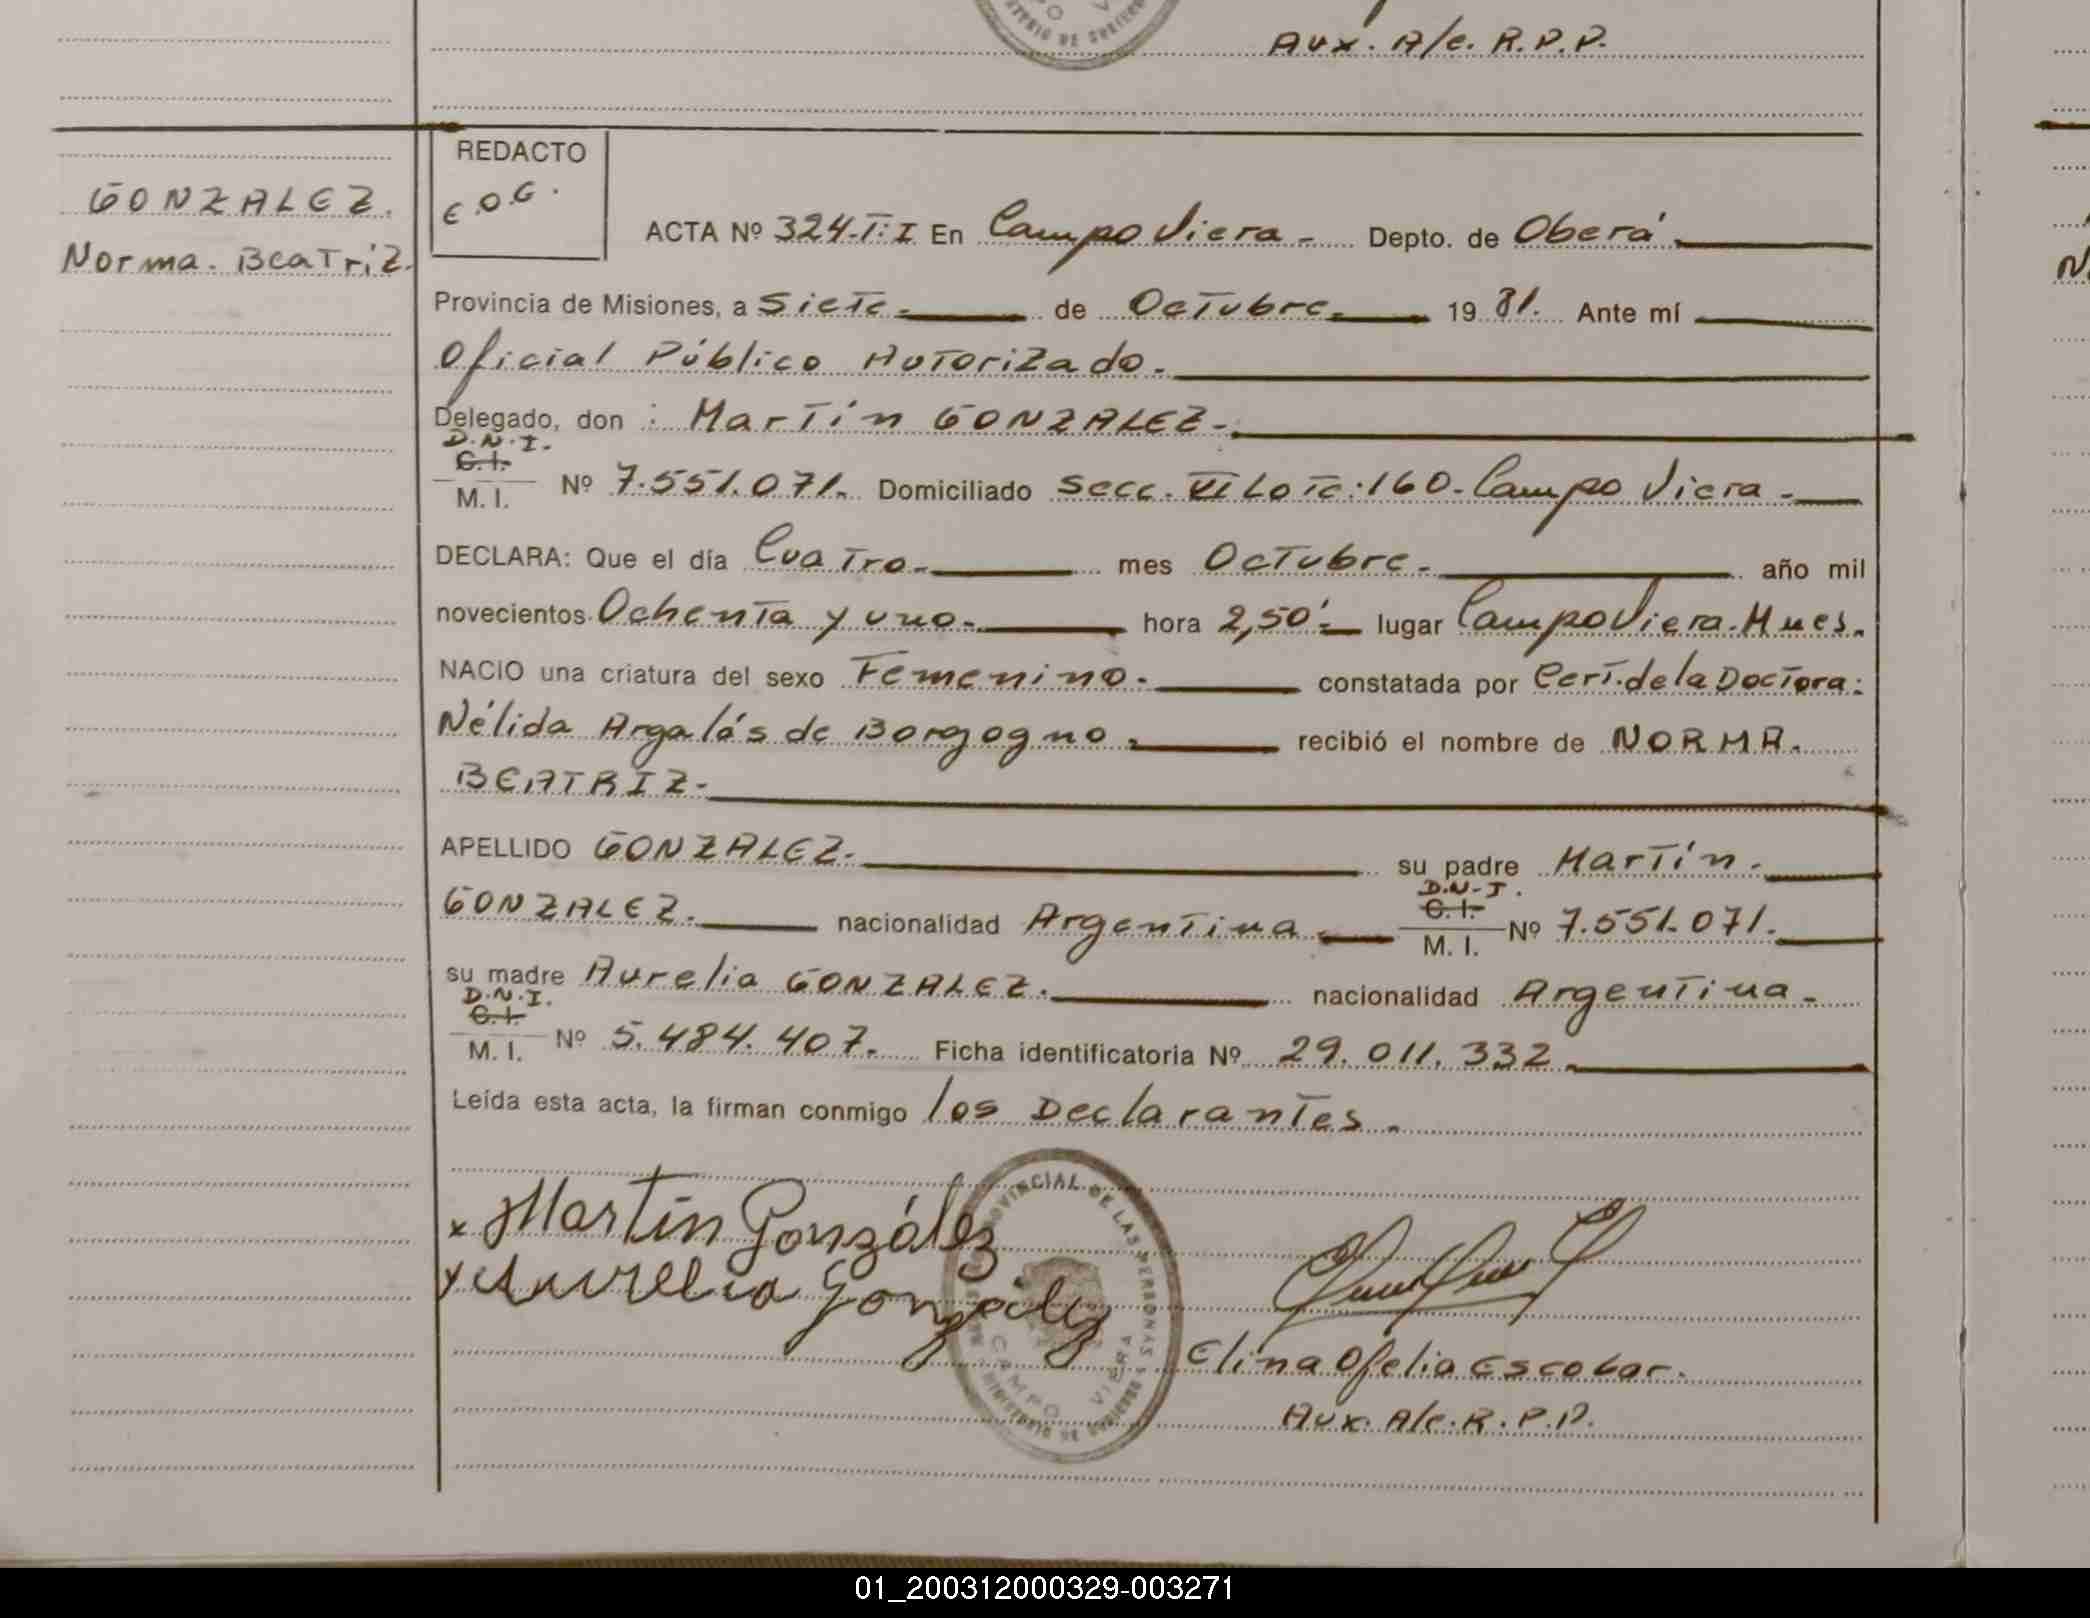 Aux. A/c. R.P.P.
GONZALEZ.
Norma. Beatriz.
REDACTO
E.O.G.
ACTA Nº 324-T:I En Campo Viera - Depto. de Oberá.
Provincia de Misiones, a Siete. de Octubre. 19 81. Ante mí
Oficial Público Autorizado.
Delegado, don : Martín GONZALEZ-
D.N.I.
C.I.
M. I. Nº 7.551.071. Domiciliado Secc. VI Lote:160-Campo Viera -
DECLARA: Que el día Cuatro. mes Octubre. año mil
novecientos Ochenta y uno. hora 2,50'. lugar Campo Viera. Mnes.
NACIO una criatura del sexo Femenino. constatada por Cert. de la Doctora:
Nélida Argalás de Borgogno. recibió el nombre de NORMA.
BEATRIZ-
APELLIDO GONZALEZ. su padre Martín.
GONZALEZ. nacionalidad Argentina
D.N-I.
C.I.
M. I. Nº 7.551.071.
su madre Aurelia GONZALEZ. nacionalidad Argentina -
D.N.I.
C.I.
M. I. Nº 5.484.407. Ficha identificatoria Nº 29.011.332
Leída esta acta, la firman conmigo los Declarantes.
x Martín González
x Aurelia González
PROVINCIAL DE LAS PERSONAS
CAMPO VIERA
MINISTERIO DE GOBIERNO
Elina Ofelia Escobar.
Aux. A/c. R.P.P.
01_200312000329-003271